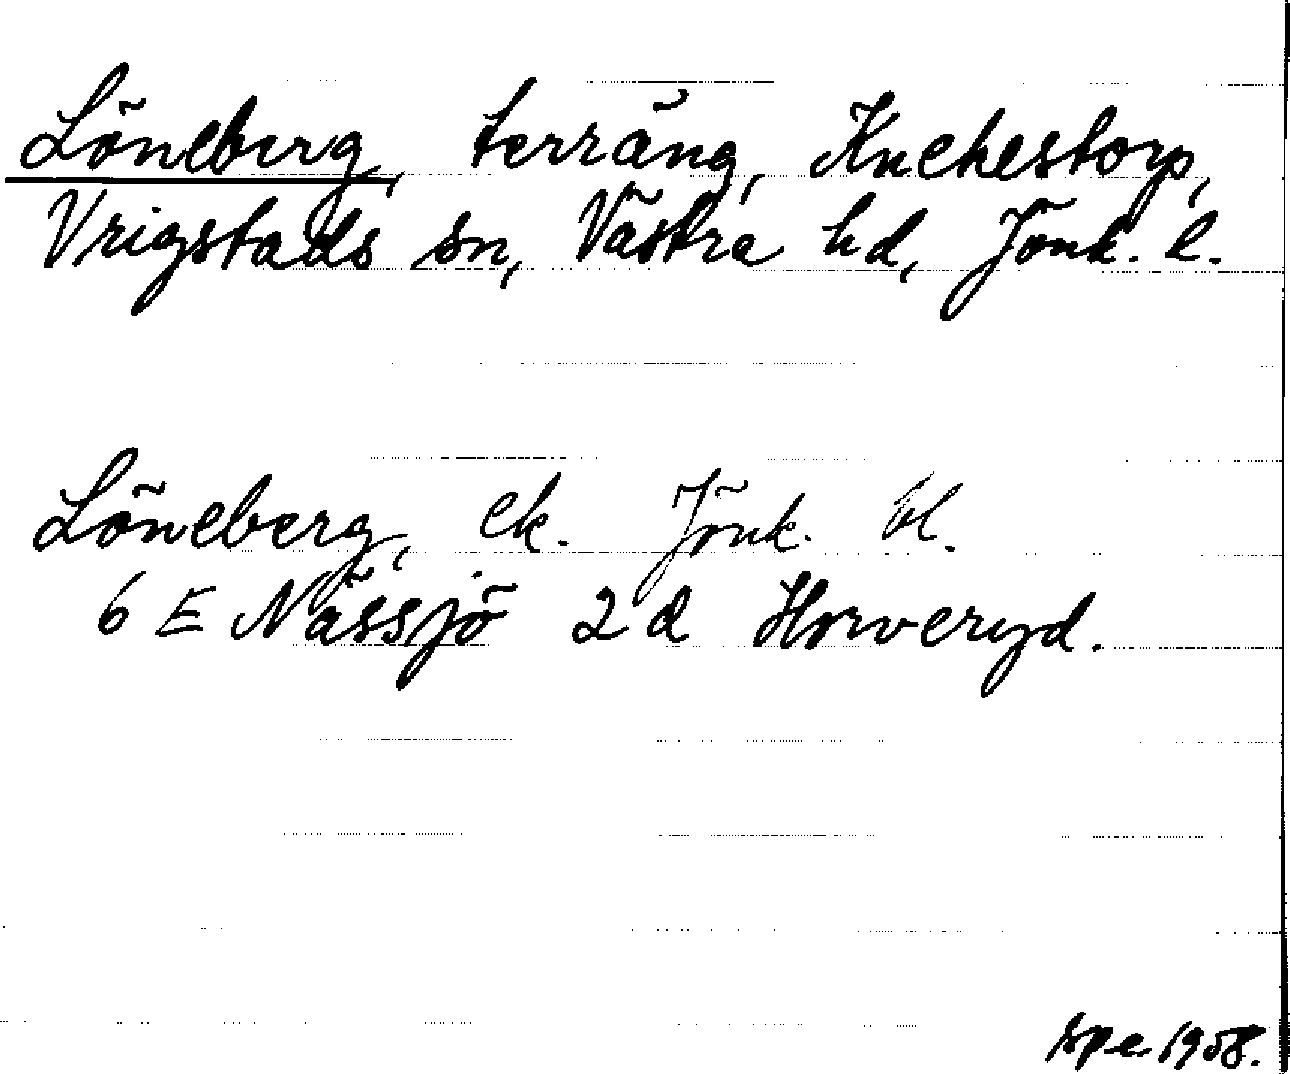 Löneberg, terräng, Knekestorp,
Vrigstads sn, Västra hd, Jönk. l.
Löneberg, ek. Jönk. bl.
6 E Nässjö 2 d Horveryd.
1958.